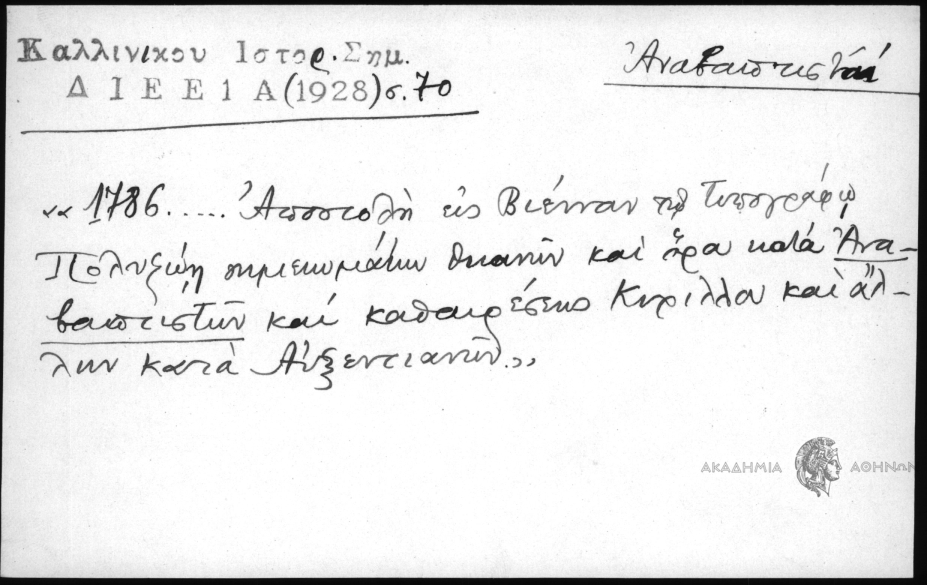 Καλλινικου Ιστορ. Σημ.
Δ Ι Ε Ε 1 Α (1928) σ. 70
Ἀναβαπτισταί
«1786..... Ἀποστολὴ εἰς Βιένναν τῷ Τυπογράφῳ
Πολυζώῃ σημειωμάτων καὶ κατὰ Ἀνα-
βαπτιστῶν καὶ καθαιρέσεως Κυρίλλου καὶ ἄλ-
λων κατὰ Αὐξεντιανῶν.»
ΑΚΑΔΗΜΙΑ ΑΘΗΝΩΝ